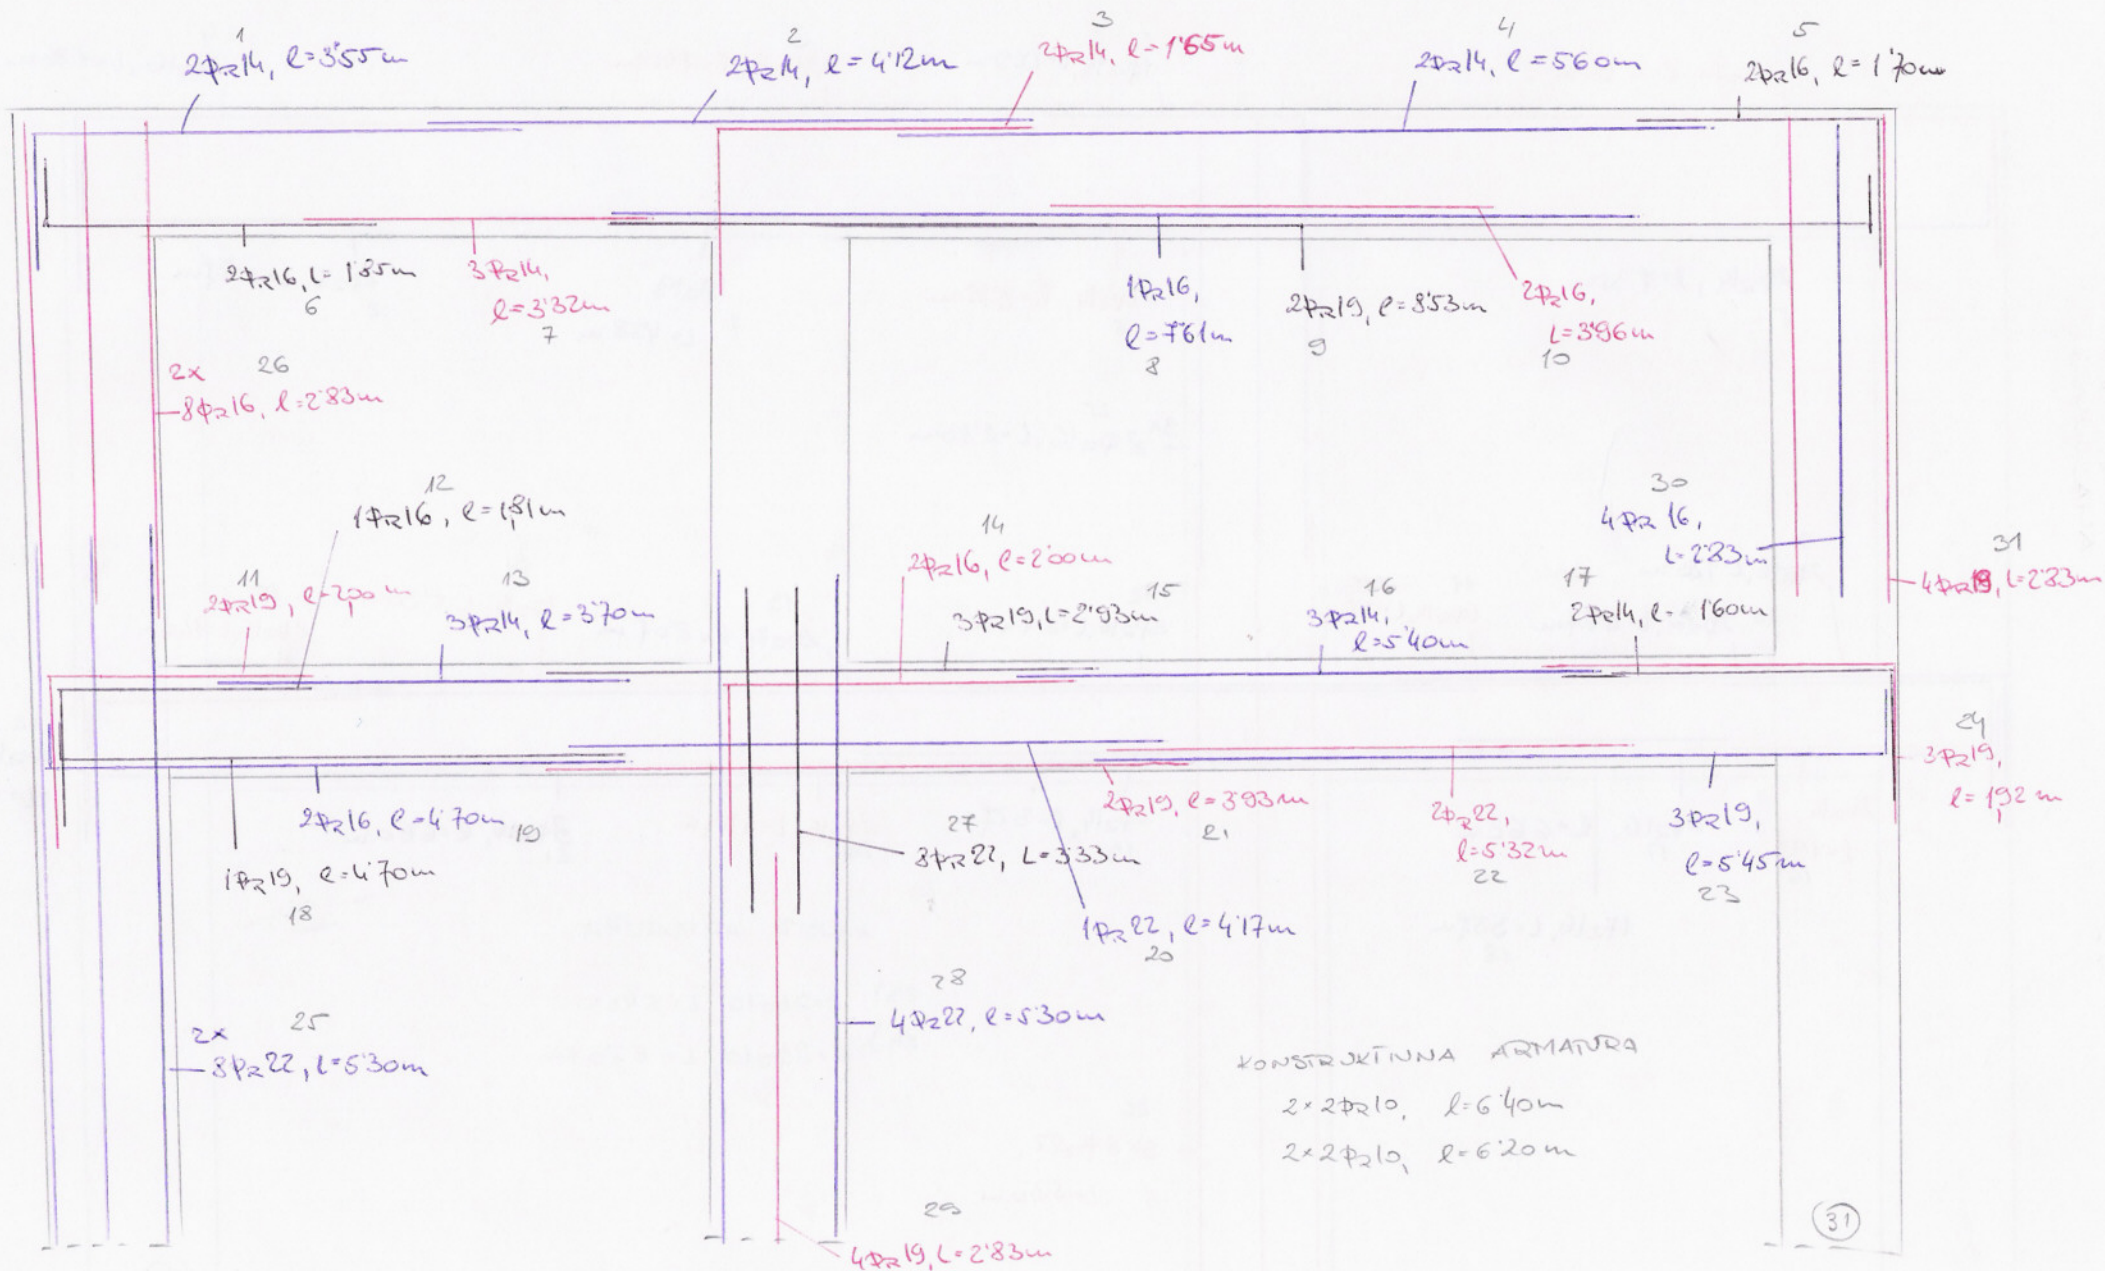 1
2ϕR14, l=3'55m
2
2ϕR14, l=4'12m
3
2ϕR14, l=1'65m
4
2ϕR14, l=5'60m
5
2ϕR16, l=1'70m
2ϕR16, l=1'85m
6
3ϕR14,
l=3'32m
7
1ϕR16,
l=7'61m
8
2ϕR19, l=8'53m
9
2ϕR16,
L=3'96m
10
2x
26
8ϕR16, l=2'83m
12
1ϕR16, l=1,81m
11
2ϕR19, l=2,00m
13
3ϕR14, l=3'70m
14
2ϕR16, l=2'00m
15
3ϕR19, L=2'93m
16
3ϕR14,
l=5'40m
17
2ϕR14, l=1'60m
30
4ϕR16,
L=2'83m
31
4ϕR19, L=2'83m
2ϕR16, l=4'70m
19
1ϕR19, l=4'70m
18
27
8ϕR22, L=3'33m
2ϕR19, l=3'93m
21
2ϕR22,
l=5'32m
22
3ϕR19,
l=5'45m
23
24
3ϕR19,
l=1,92m
1ϕR22, l=4'17m
20
2x
25
8ϕR22, l=5'30m
28
4ϕR22, l=5'30m
29
4ϕR19, L=2'83m
KONSTRUKTIVNA ARMATURA
2x2ϕR10, l=6'40m
2x2ϕR10, l=6'20m
31